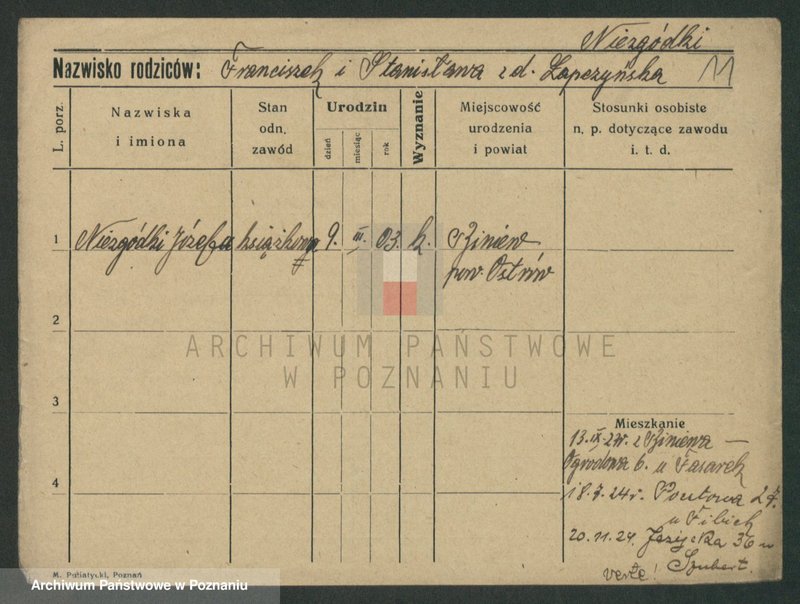 Niezgódki
Nazwisko rodziców: Franciszek i Stanisława z d. Łapczyńska 11
L. porz.
Nazwiska
i imiona
Stan
odn.
zawód
Urodzin
dzień
miesiąc
rok
Wyznanie
Miejscowość
urodzenia
i powiat
Stosunki osobiste
n. p. dotyczące zawodu
i. t. d.
1 Niezgódki Józefa książkowa 9. III. 03. k.
pow. Ostrów
2
ARCHIWUM PAŃSTWOWE
W POZNANIU
3
Mieszkanie
13. IX. 24r. z
Ogrodowa 6. u Tasarek
4
18. 24r. Pocztowa 27.
u
20. 11. 24. 36 u
Szubert.
verte!
M. Putiatycki, Poznań
Archiwum Państwowe w Poznaniu